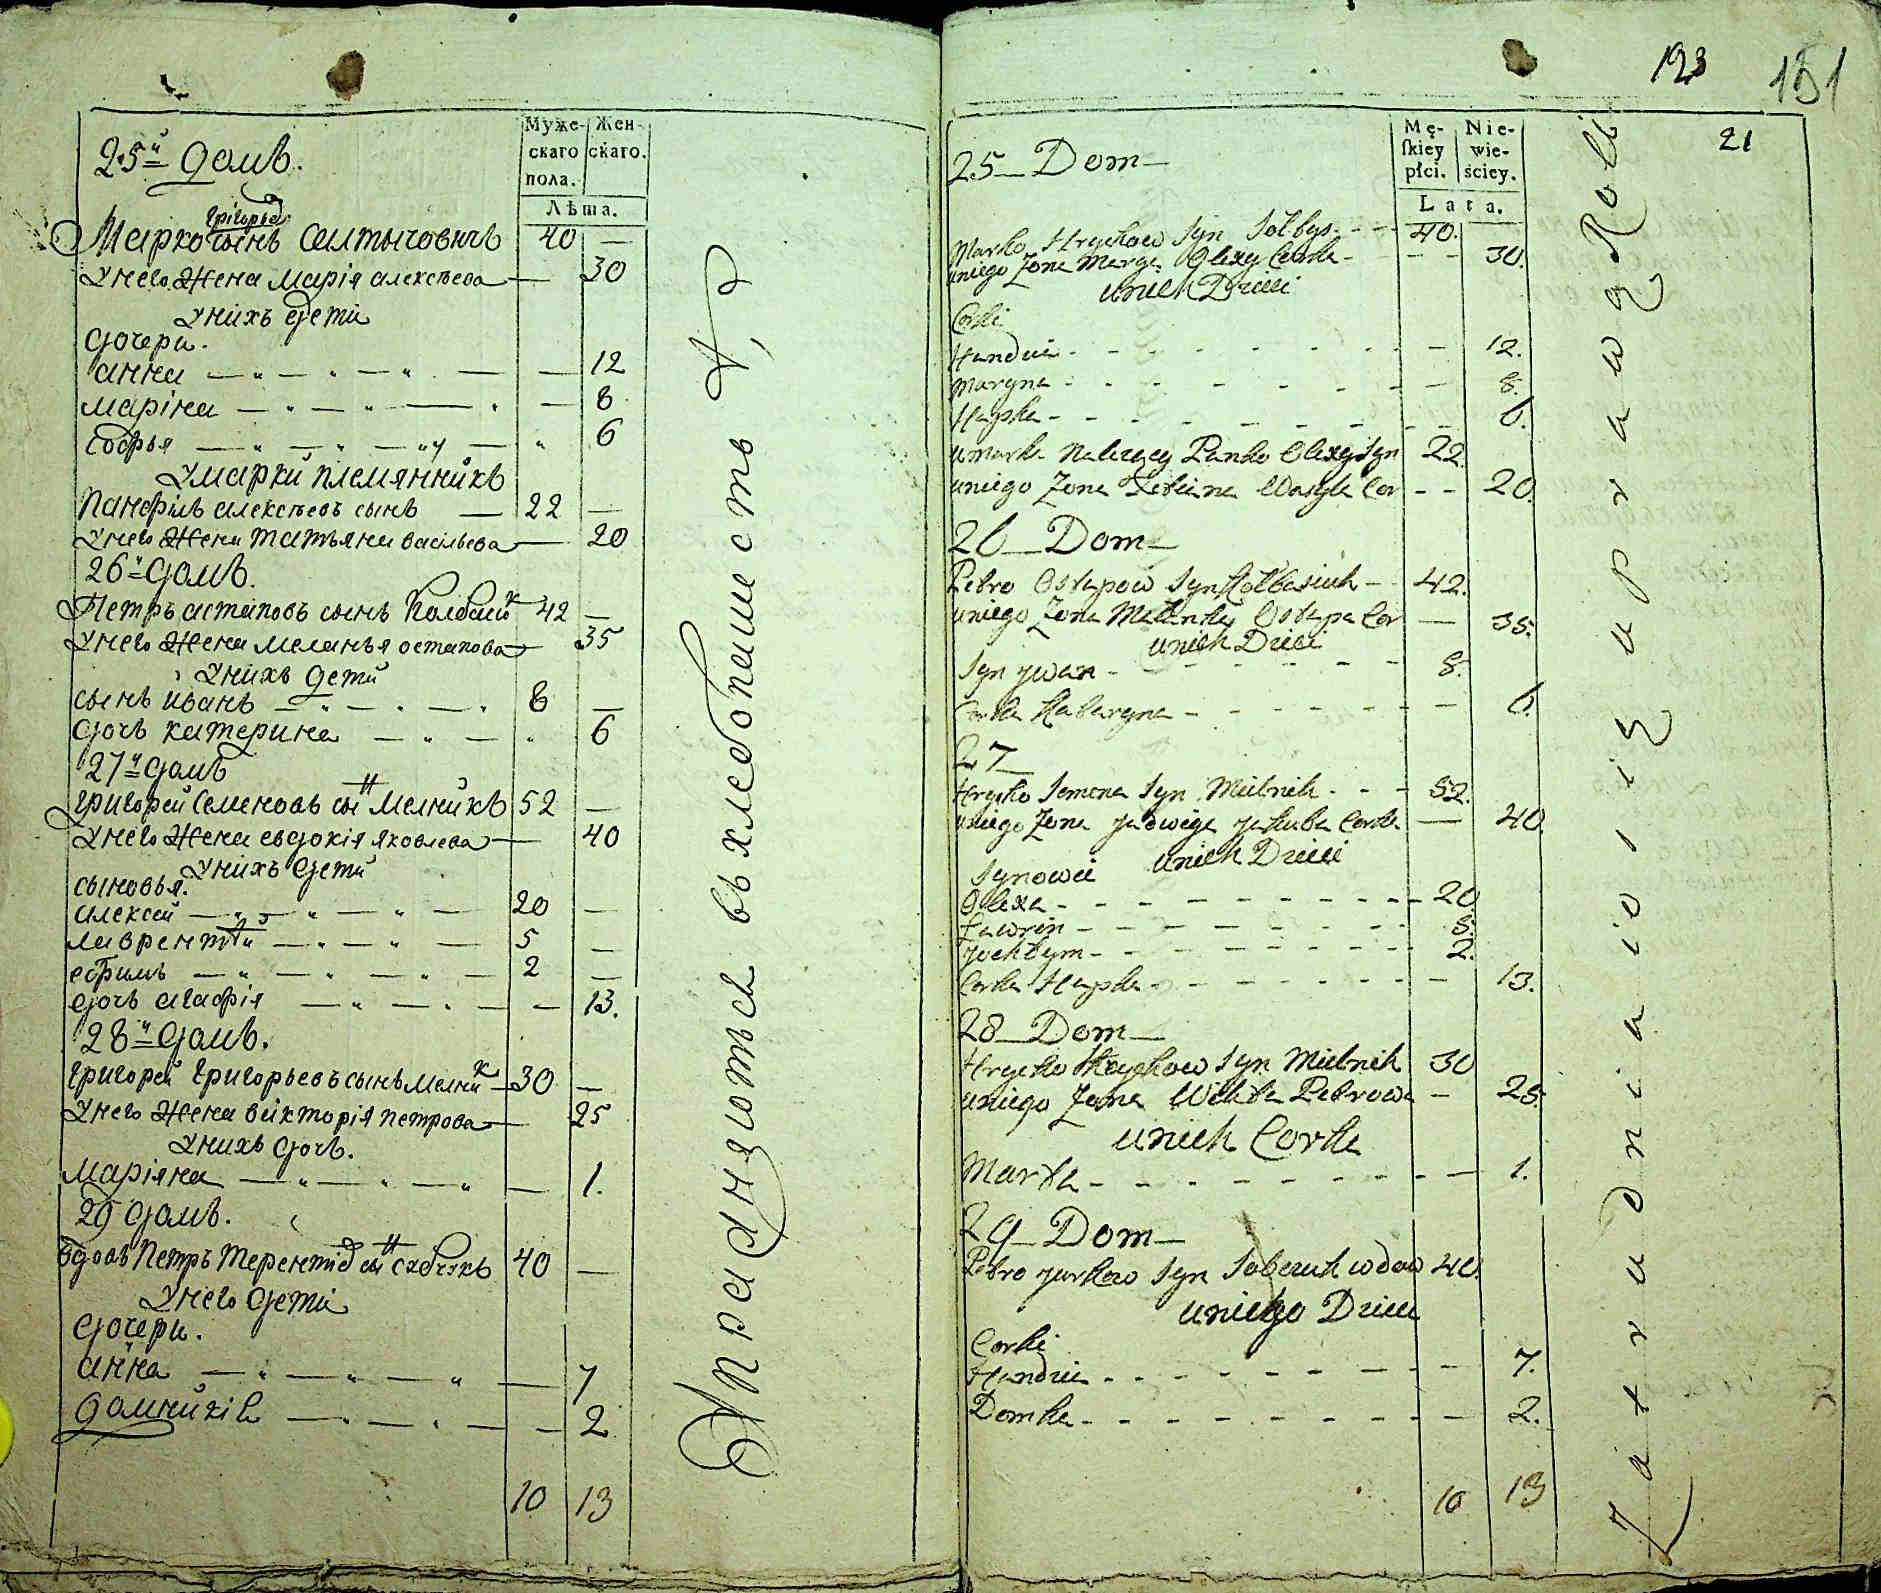 Муже-
скаго
пола.
Жен-
скаго.
Лѣта.
25й домъ.
Григорьевъ
Марко сынъ Салтысовичъ 40 —
У него жена Марія Алексѣева — 30
У нихъ дети
дочери.
Анна — 12
Маріна — 8
Софья — 6
У Марки племянникъ
Панфілъ Алексѣевъ сынъ — 22 —
У него жена Татьяна Васільева — 20
26й домъ.
Петръ Астаповъ сынъ 42 —
У него жена Меланья Остапова — 35
У нихъ дети
сынъ Иванъ — 8 —
дочъ Катерина — 6
27й домъ
Григорей Семеновъ сынъ Мелникъ 52 —
У него жена Евдокія Яковлева — 40
У нихъ дети
сыновья.
Алексей — 20 —
Лаврентій — 5 —
Ефимъ — 2 —
дочъ Агафія — 13.
28й домъ.
Григорей Григорьевъ сынъ Мелник 30 —
У него жена Вікторія Петрова — 25
У нихъ дочъ.
Маріяна — 1.
29 домъ.
вдовъ Петръ Терентіев сын 40 —
У него дети
дочери.
Анна — 7
Домникія — 2
10 13
Упражняются въ хлебопашествѣ
123
151
21
Mę-
ſkiey
płci.
Nie-
wie-
ściey.
Lata.
25 Dom
Marko Hryckow Syn Soltys 40.
uniego Zona Marya Olexy Corka 30.
unich Dzieci
Corki
Handzia 12.
Maryna 8.
Hapka 6.
u Marka Należący Panko Olexy Syn 22.
uniego Zona Tetiana Wasyla Cor 20.
26 Dom
Petro Ostapow Syn Kołbasiuk 42.
uniego Zona Malanka Ostapa Cor 35.
unich Dzieci
Syn Jwan 8.
Corka Kataryna 6.
27
Hrycko Semena Syn Mielnik 52.
uniego Zona Jadwiga Jakuba Corka 40.
unich Dzieci
Synowie
Olexa 20.
Ławrin 5.
Jochtym 2.
Corka Hapka 13.
28 Dom
Hrycko Hryckow Syn Mielnik 30
uniego Zona Wikta Petrowa 25.
unich Corka
Marta 1.
29 Dom
Petro Jurkow Syn Sobczuk wdow 40.
uniego Dzieci
Corki
Handzia 7.
Domka 2.
10 13
Zatrudniaioią się uprawą Roli